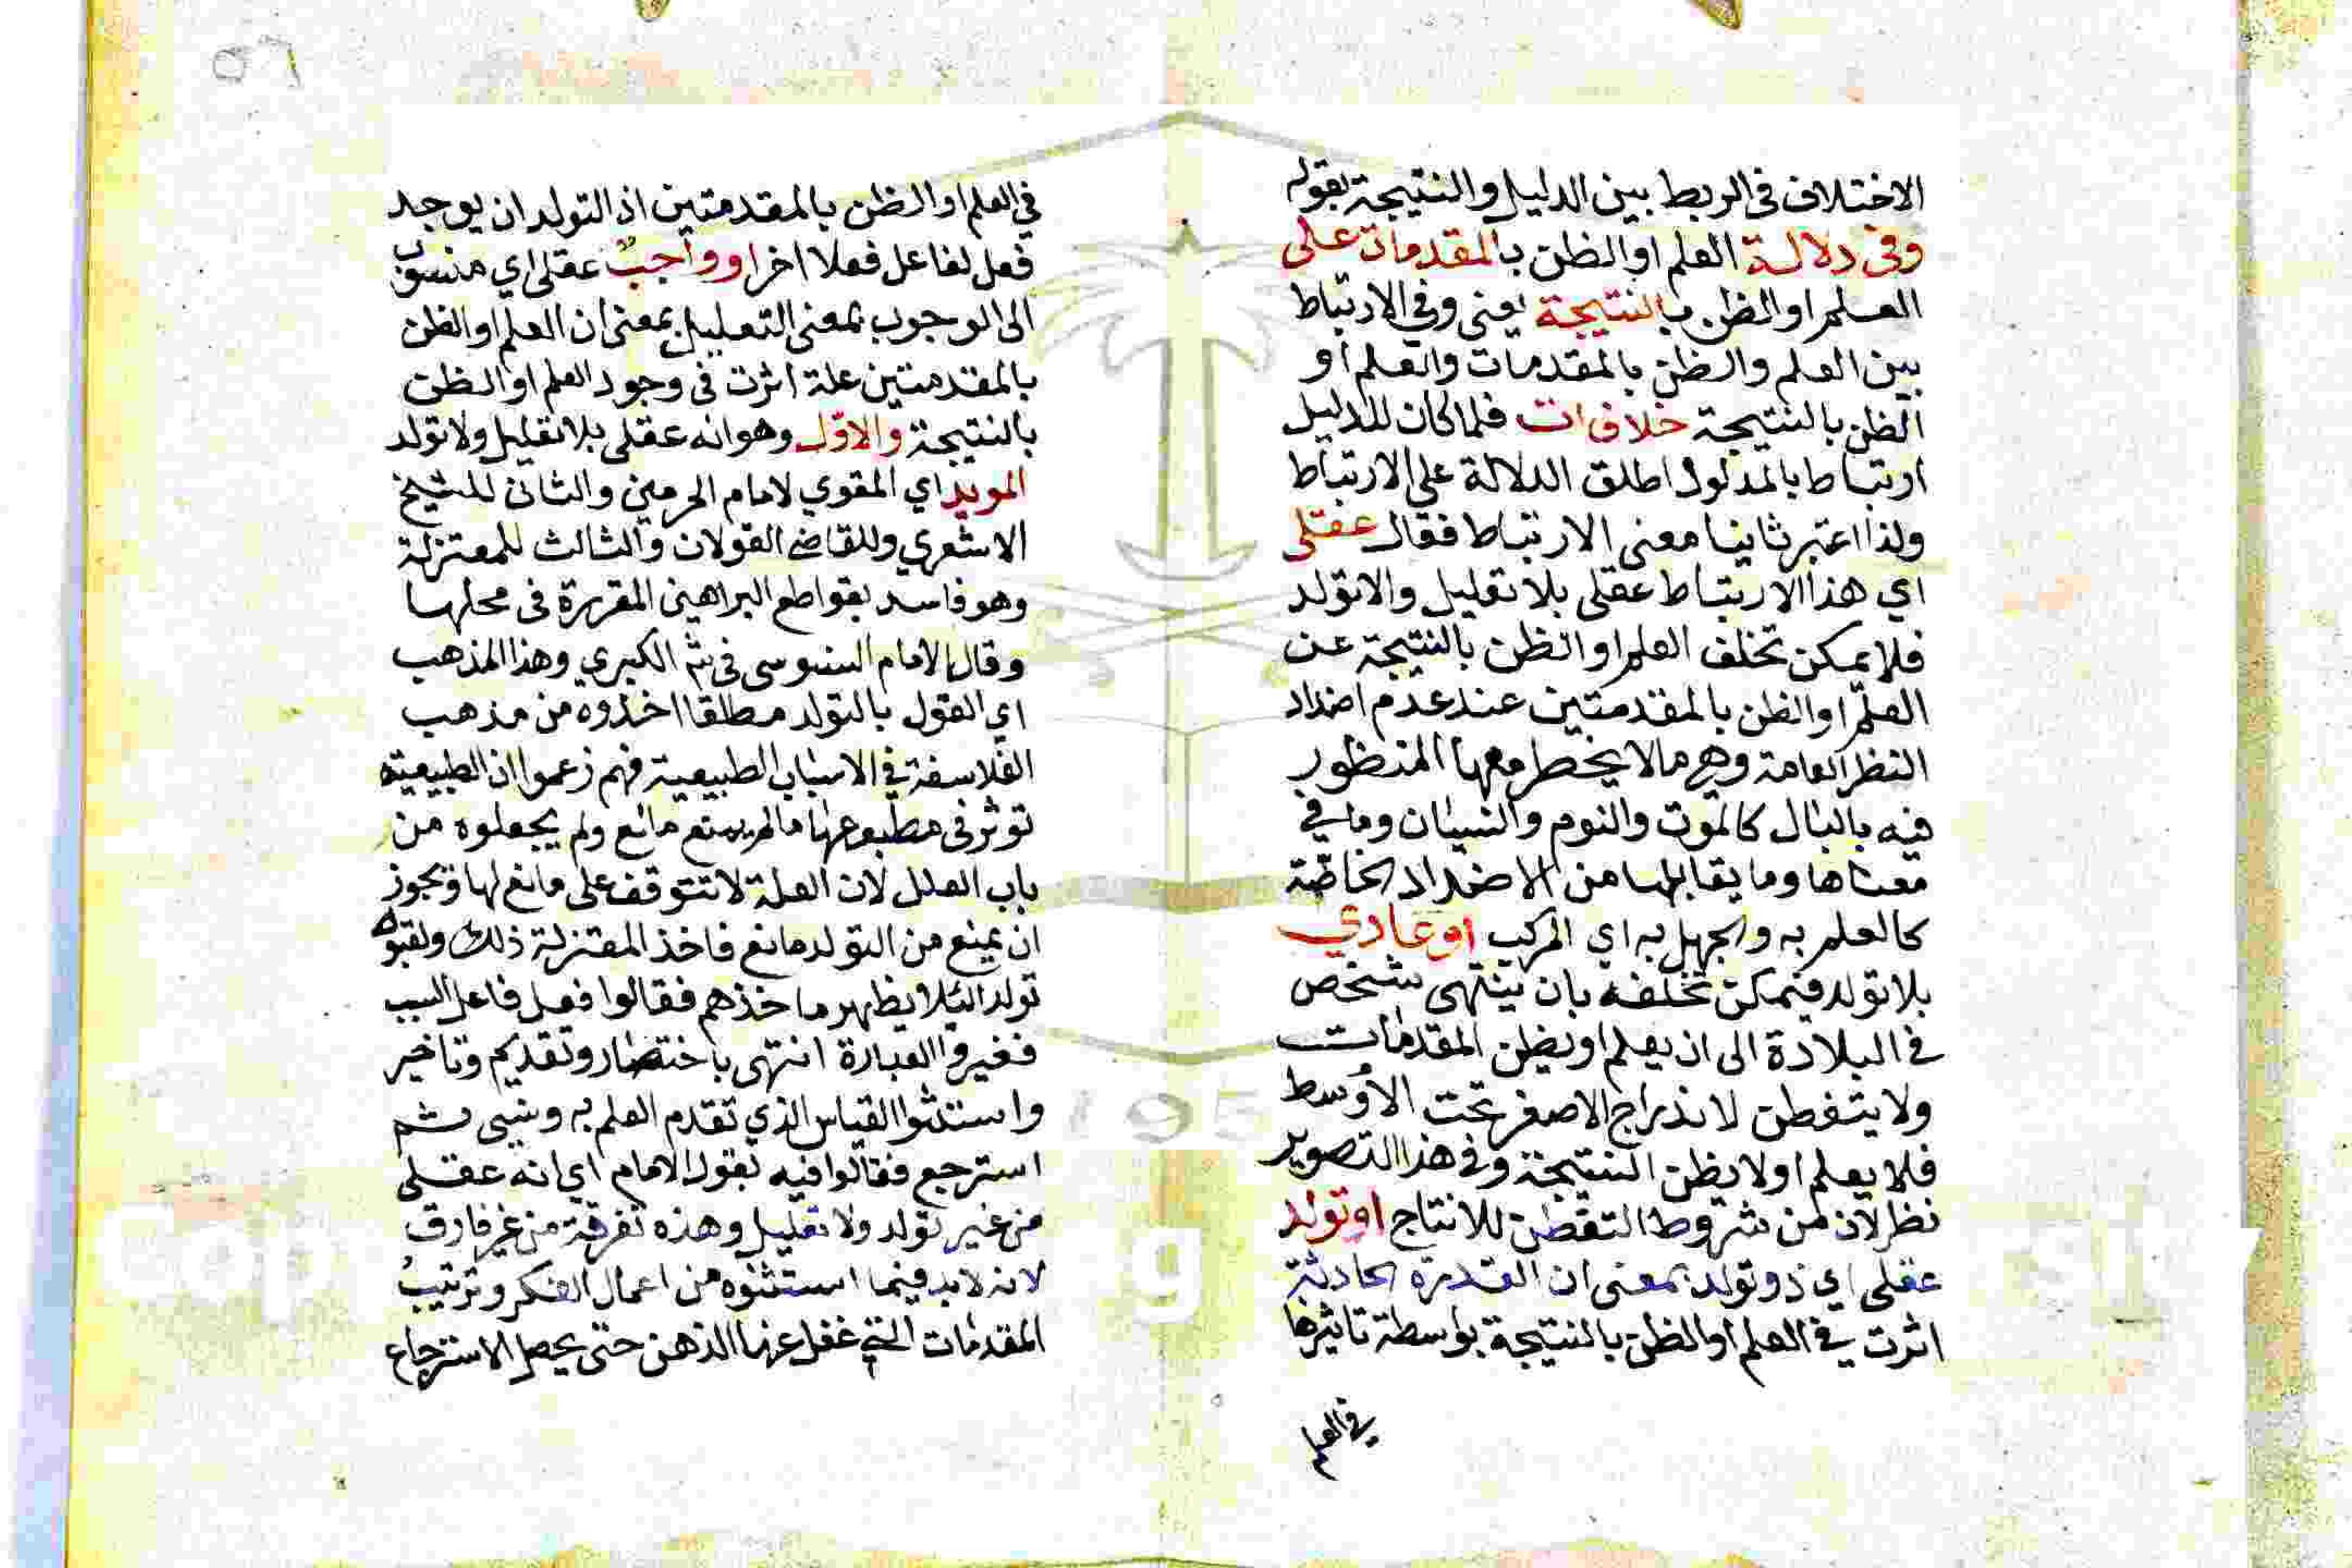 الاختلاف في الربط بين الدليل والنتيجة بقوله
وفي دلالة العلم او الظن بالمقدمات على
العلم او الظن بالنتيجة يعني وفي الارتباط
بين العلم والظن بالمقدمات والعلم او
الظن بالنتيجة خلاف ات فلما كان للدليل
ارتباط بالمدلول اطلق الدلالة على الارتباط
ولذا اعتبر ثانيا معنى الارتباط فقال عقلى
اي هذا الارتباط عقلى بلا تعليل والاتولد
فلا يمكن تخلف العلم او الظن بالنتيجة عن
العلم او الظن بالمقدمتين عند عدم اضداد
النظر العامة وهي ما لا يخطر معها المنظور
فيه بالبال كالموت والنوم والنسيان وما في
معناها وما يقابلها من الاضداد الخاصة
كالعلم به والجهل به اي المركب او عادي
بلا تولد فيمكن تخلفه بان ينتهى شخص
في البلادة الى ان يعلم او يظن المقدمات
ولا يتفطن لاندراج الاصغر تحت الاوسط
فلا يعلم او لا يظن النتيجة وفي هذا التصوير
نظر لان من شروط التفطن للانتاج او تولد
عقلى اي ذو تولد بمعنى ان القدرة الحادثة
اثرت في العلم او الظن بالنتيجة بواسطة تاثيرها
في العلم
في العلم او الظن بالمقدمتين اذ التولد ان يوجد
فعل لفاعل فعلا اخر او واجب عقلى اي منسوب
الى الوجوب بمعنى التعليل بمعنى ان العلم او الظن
بالمقدمتين علة اثرت في وجود العلم او الظن
بالنتيجة والاول وهو انه عقلى بلا تعليل ولا تولد
المويد اي المقوي لامام الحرمين والثانى للشيخ
الاشعري وللقاضى القولان والثالث للمعتزلة
وهو فاسد بقواطع البراهين المقررة في محلها
وقال الامام السنوسى في شرح الكبري وهذا المذهب
اي القول بالتولد مطلقا اخذوه من مذهب
الفلاسفة في الاسباب الطبيعية فهم زعموا ان الطبيعية
توثر في مطبوعها ما لم يمنع مانع ولم يجعلوه من
باب العلل لان العلة لا تتوقف على مانع لها ويجوز
ان يمنع من التولد مانع فاخذ المعتزلة ذلك ولقبوه
تولدا لئلا يظهر ماخذهم فقالوا فعل فاعل السبب
فغيروا العبارة انتهى باختصار وتقديم وتاخير
واستثنوا القياس الذي تقدم العلم به ونسى ثم
استرجع فقالوا فيه بقول الامام اي انه عقلى
من غير تولد ولا تعليل وهذه تفرقة من غير فارق
لانه لابد فيما استثنوه من اعمال الفكر وترتيب
المقدمات التي غفل عنها الذهن حتى يحصل الاسترجاع